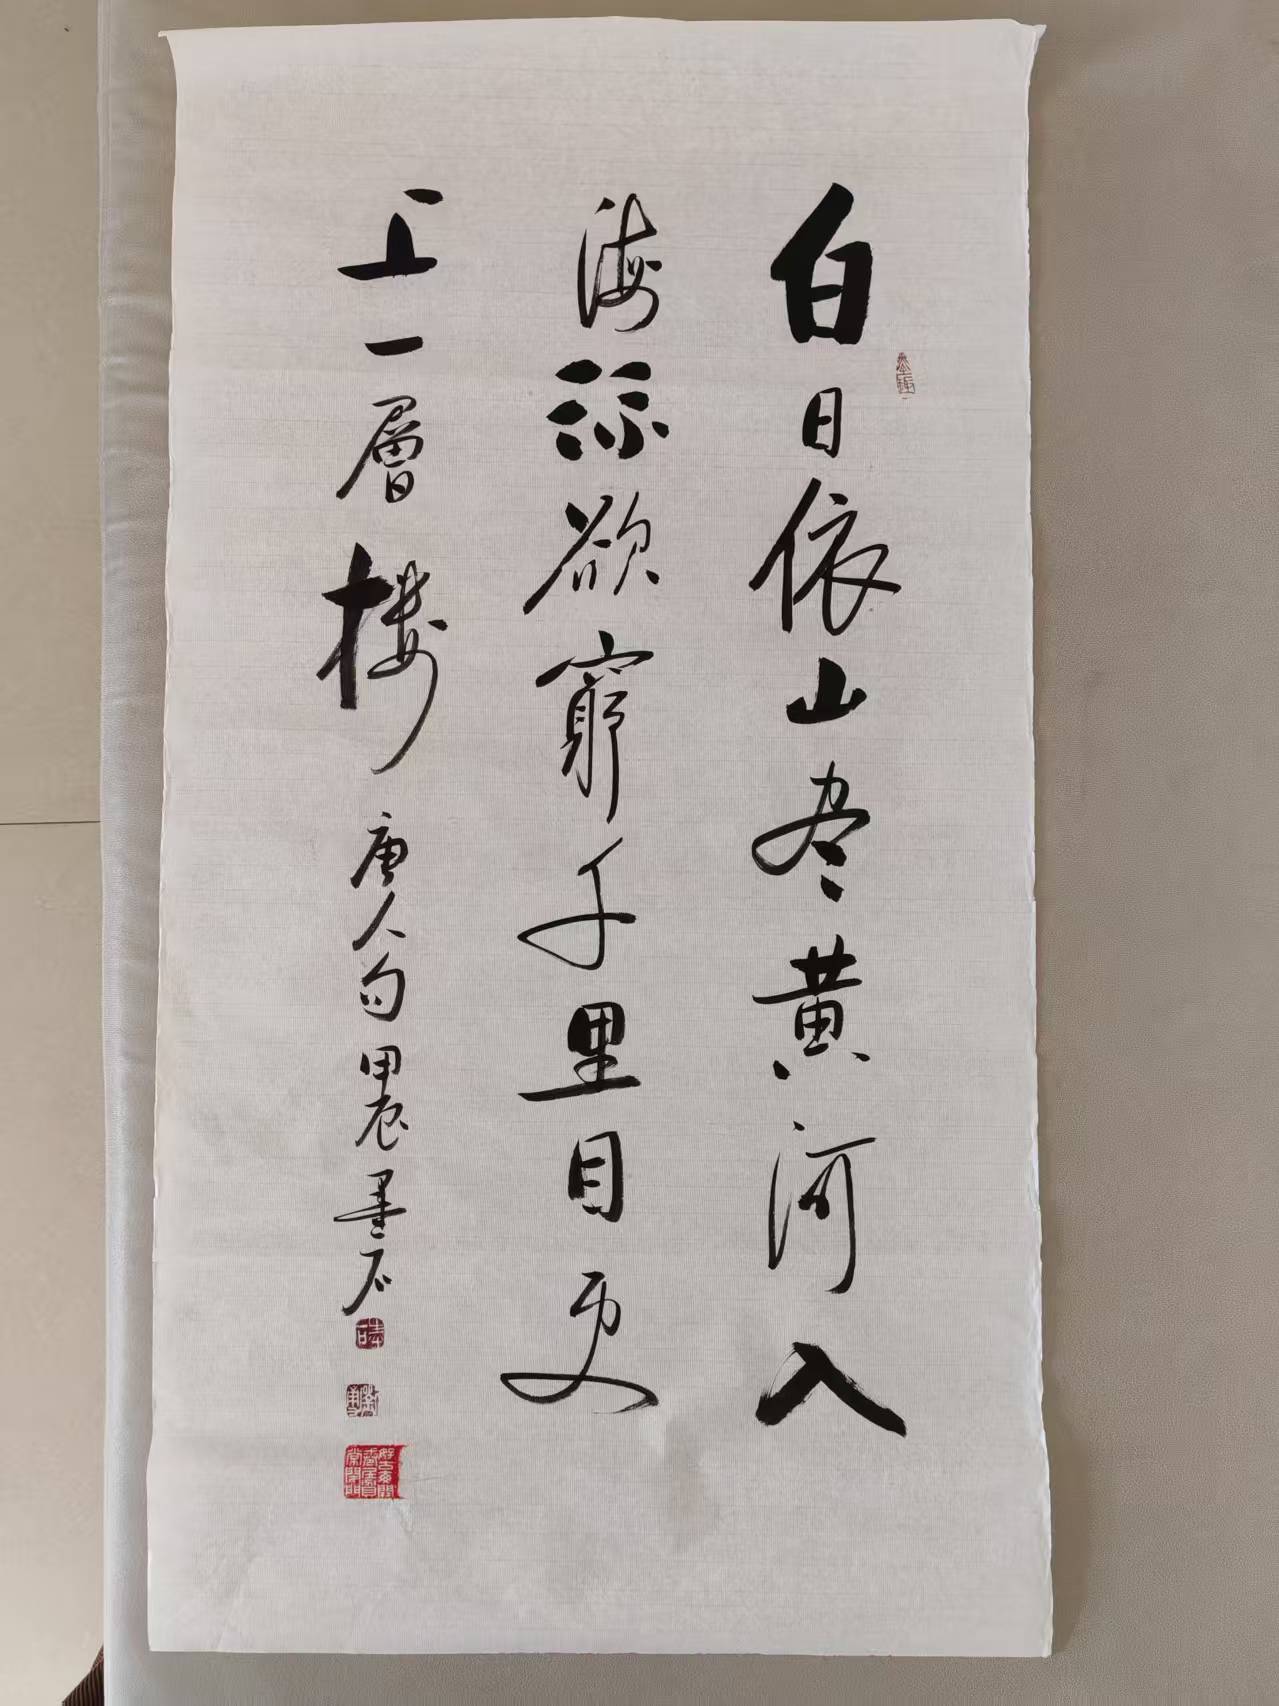 白日依山尽黄河入
海流欲窮千里目更
上一層楼 唐人句 甲辰 墨石